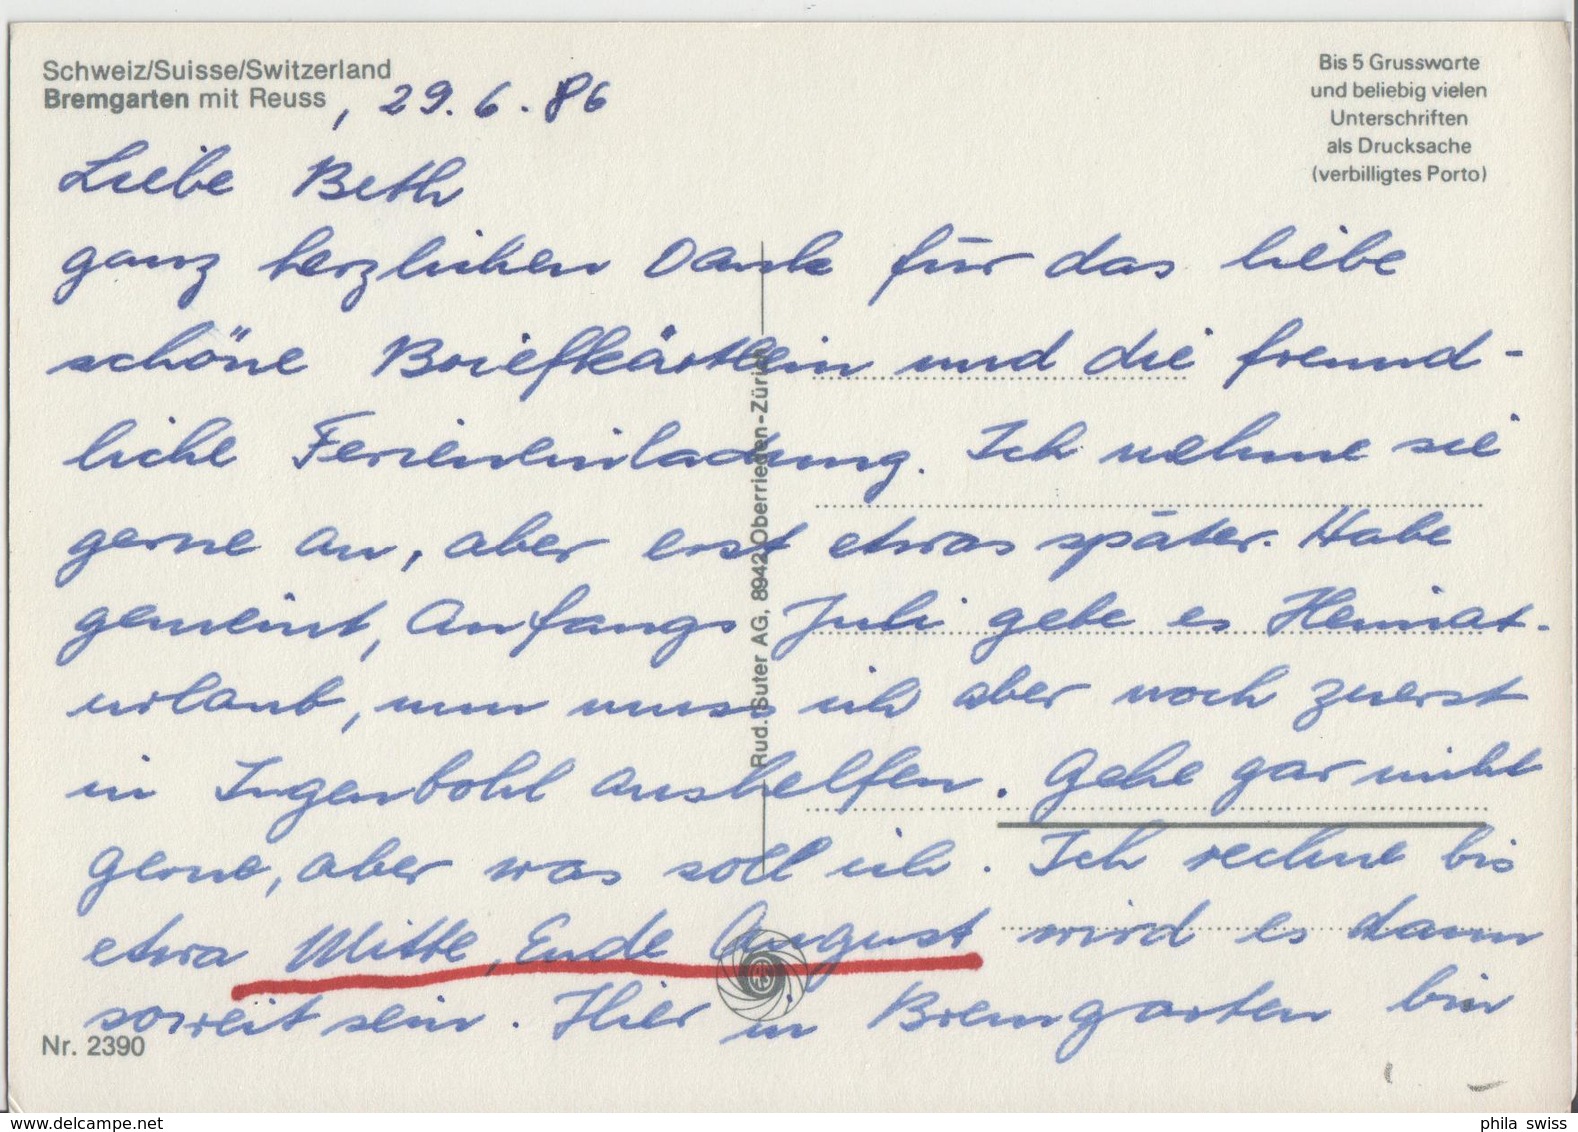 Schweiz/Suisse/Switzerland
Bremgarten mit Reuss, 29.6.86
Bis 5 Grussworte
und beliebig vielen
Unterschriften
als Drucksache
(verbilligtes Porto)
Liebe Beth
ganz herzlichen Dank für das liebe
schöne Briefkärtlein und die freund-
liche Ferieneinladung. Ich nehme sie
gerne an, aber erst etwas später. Habe
gemeint, Anfangs Juli gebe es Heimat-
urlaub, nun muss ich aber noch zuerst
in Ingenbohl aushelfen. Gehe gar nicht
gerne, aber was soll ich. Ich rechne bis
etwa Mitte, Ende August wird es dann
soweit sein. Hier in Bremgarten bin
Rud. Suter AG, 8942 Oberrieden-Zürich
Nr. 2390
www.delcampe.net
phila swiss